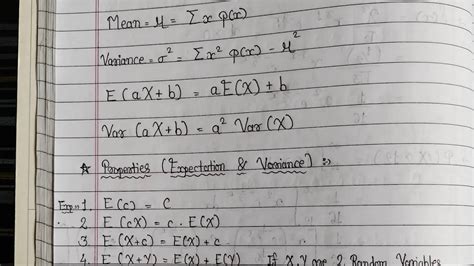 Mean = μ = Σ x p(x)
Variance = σ² = Σ x² p(x) - μ²
E (aX ± b) = a E(X) ± b
Var (aX ± b) = a² Var (X)
☆ Properties (Expectation & Variance) :-
Exp:- 1. E (c) = c
2. E (cX) = c · E(X)
3. E (X+c) = E(X) + c
4. E (X+Y) = E(X) + E(Y) If X, Y are 2 Random Variables